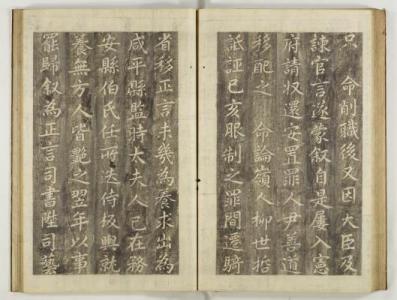 只 命削職後又因大臣及
諫官言遂蒙叙自是屢入憲
府請收還安置罪人尹善道
移配之 命論嶺人柳世哲
詆誣己亥服制之罪間遷騎
省移正言未幾為養求出為
咸平縣監時太夫人已在務
安縣伯氏任所迭侍板輿就
養無方人皆艷之翌年以事
罷歸叙為正言司書陞司藝